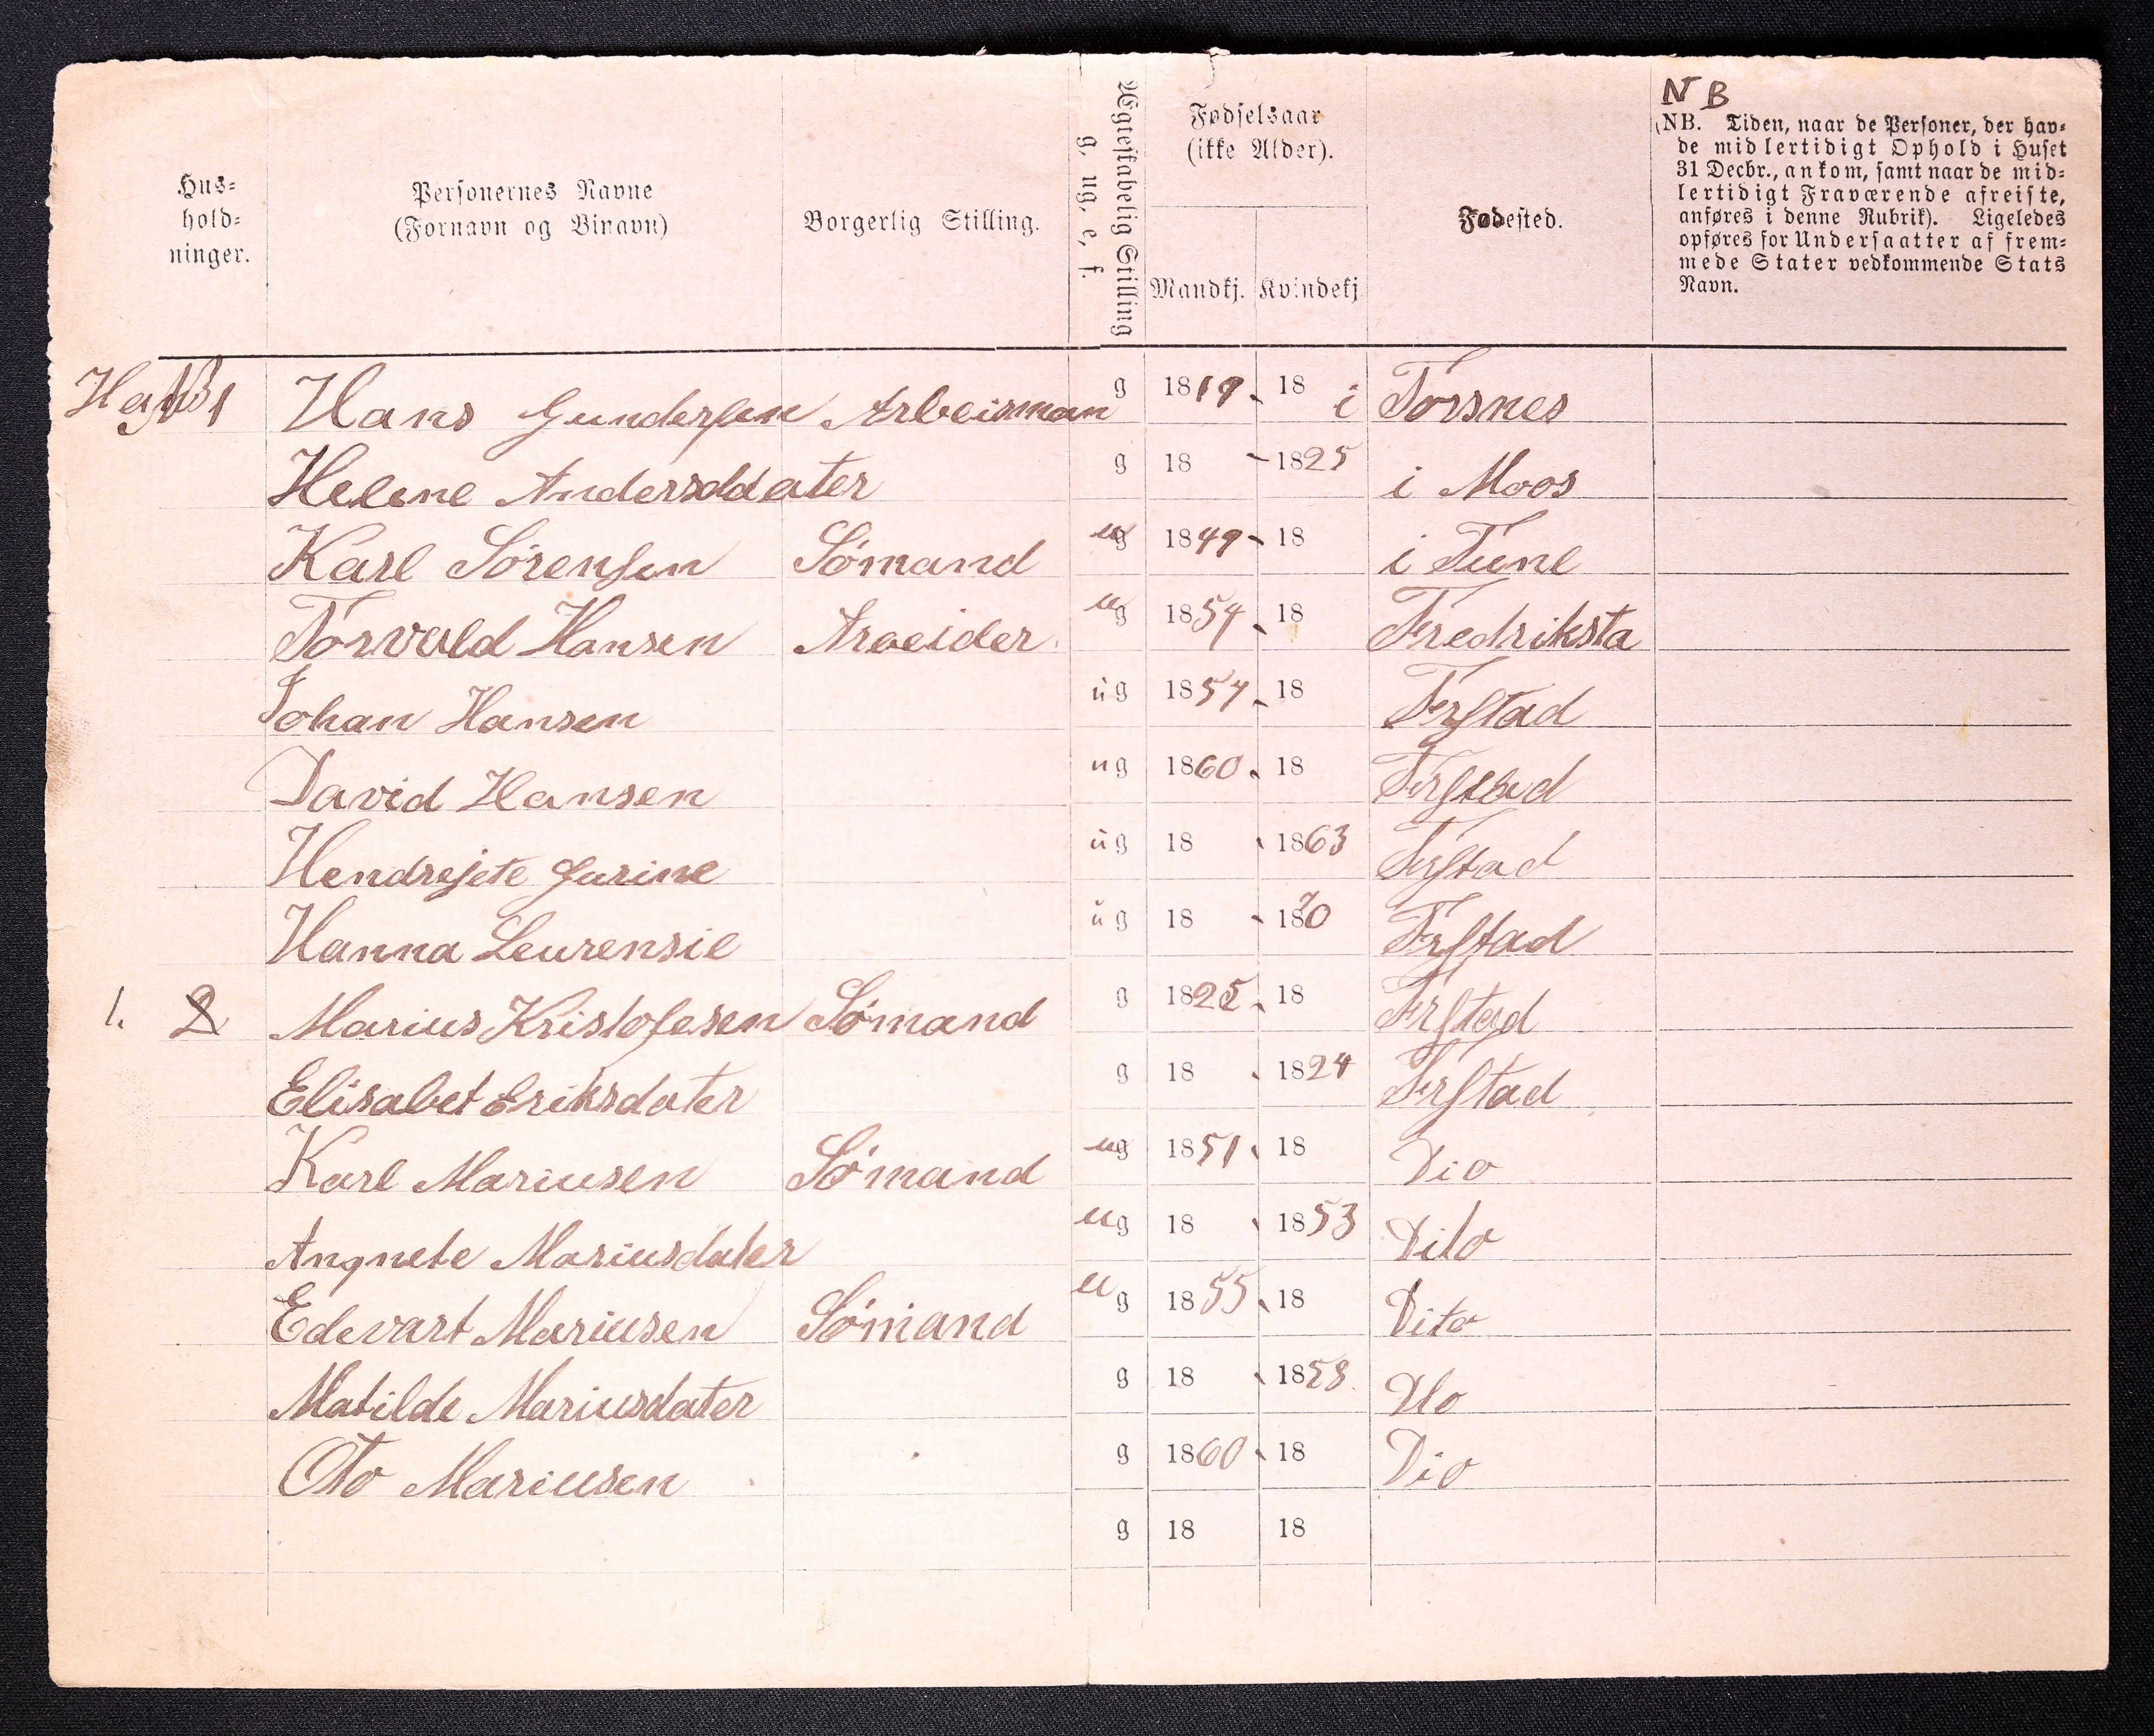 Hus-
hold-
ninger.
Personernes Navne
(Fornavn og Binavn)
Borgerlig Stilling.
Ægteskabelig Stilling
g, ug, e, f.
Fødselsaar
(ikke Alder).
Mandkj. Kvindekj
Fødested.
NB
NB. Tiden, naar de Personer, der hav-
de midlertidigt Ophold i Huset
31 Decbr., ankom, samt naar de mid-
lertidigt Fraværende afreiste,
anføres i denne Rubrik). Ligeledes
opføres for Undersaatter af frem-
mede Stater vedkommende Stats
Navn.
1 Hans Gundersen Arbeisman g 1819 18 i Torsnes
Helene Andersddater g 18 1825 i Moos
Karl Sørensen Sømand ug 1849 18 i Tune
Torvald Hansen Arbeider ug 1854 18 Fredriksta
Johan Hansen ug 1857 18 Frstad
David Hansen ug 1860 18 Frstad
Hendrejete Gurine ug 18 1863 Frstad
Hanna Leurensie ug 18 1870 Frstad
1. 2 Marius Kristofesen Sømand g 1825 18 Frstad
Elisabet Eriksdater g 18 1824 Frstad
Karl Mariusen Sømand ug 1851 18 Dio
Angnete Mariusdater ug 18 1853 Dito
Edevart Mariusen Sømand ug 1855 18 Dito
Matilde Mariusdater g 18 1858 Dto
Oto Mariusen g 1860 18 Dio
g 18 18